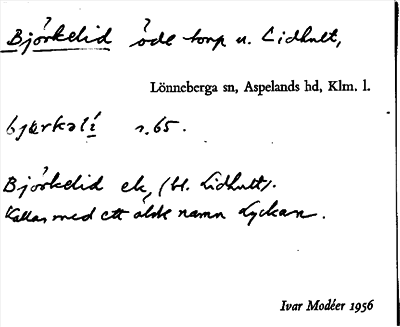 Björkelid öde torp u. Lidhult,
Lönneberga sn, Aspelands hd, Klm. l.
s. 65.
Björkelid ek, (bl. Lidhult).
Kallas med ett äldre namn Lyckan.
Ivar Modéer 1956